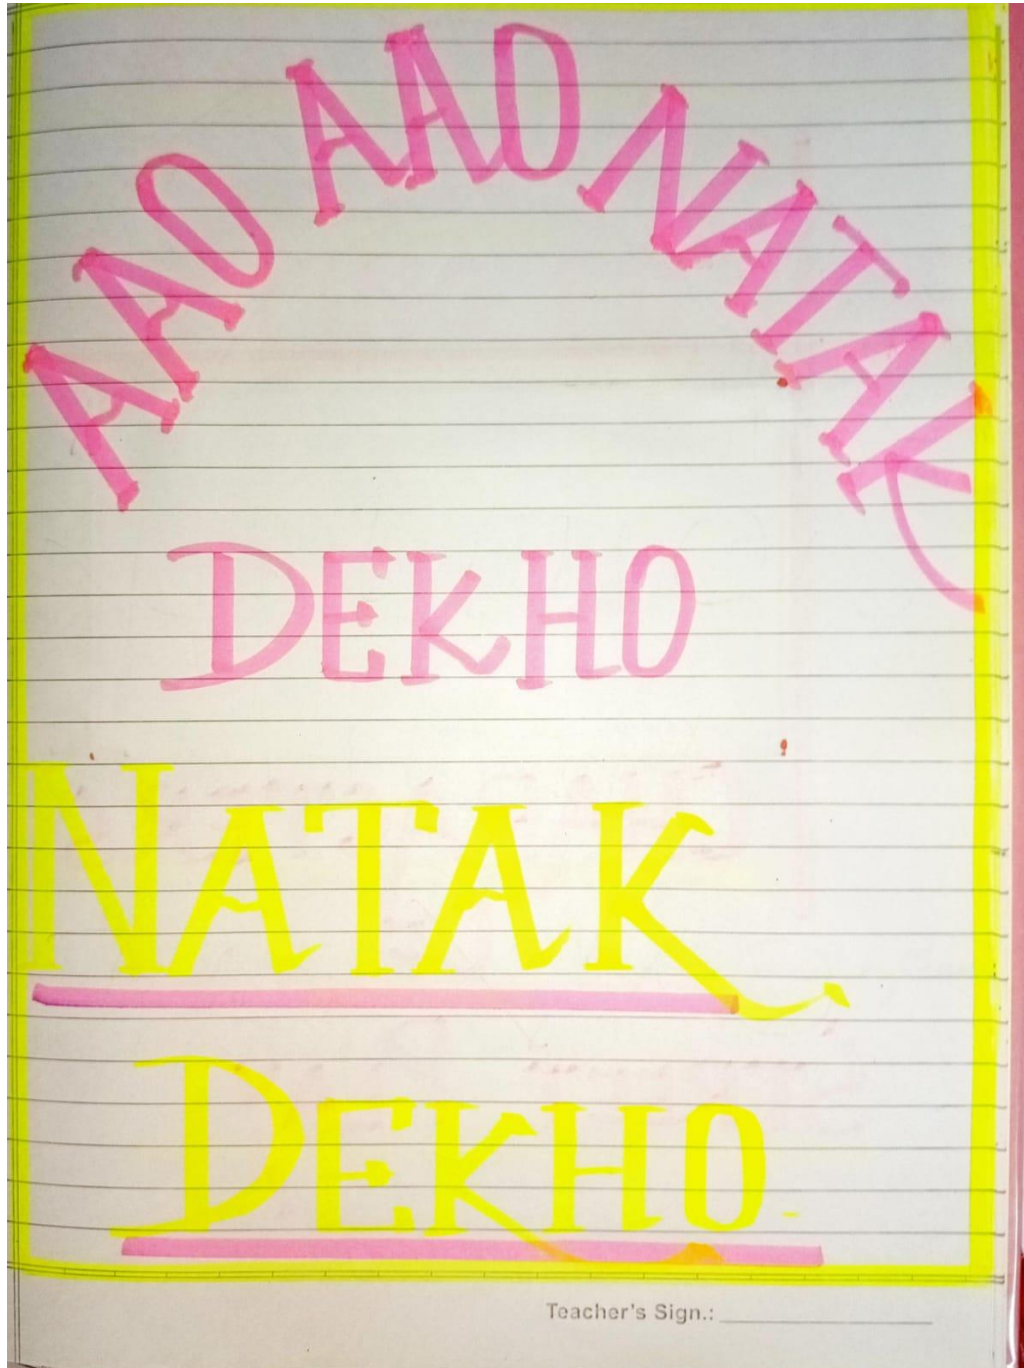 AAO AAO NATAK
DEKHO
NATAK
DEKHO
Teacher's Sign.: